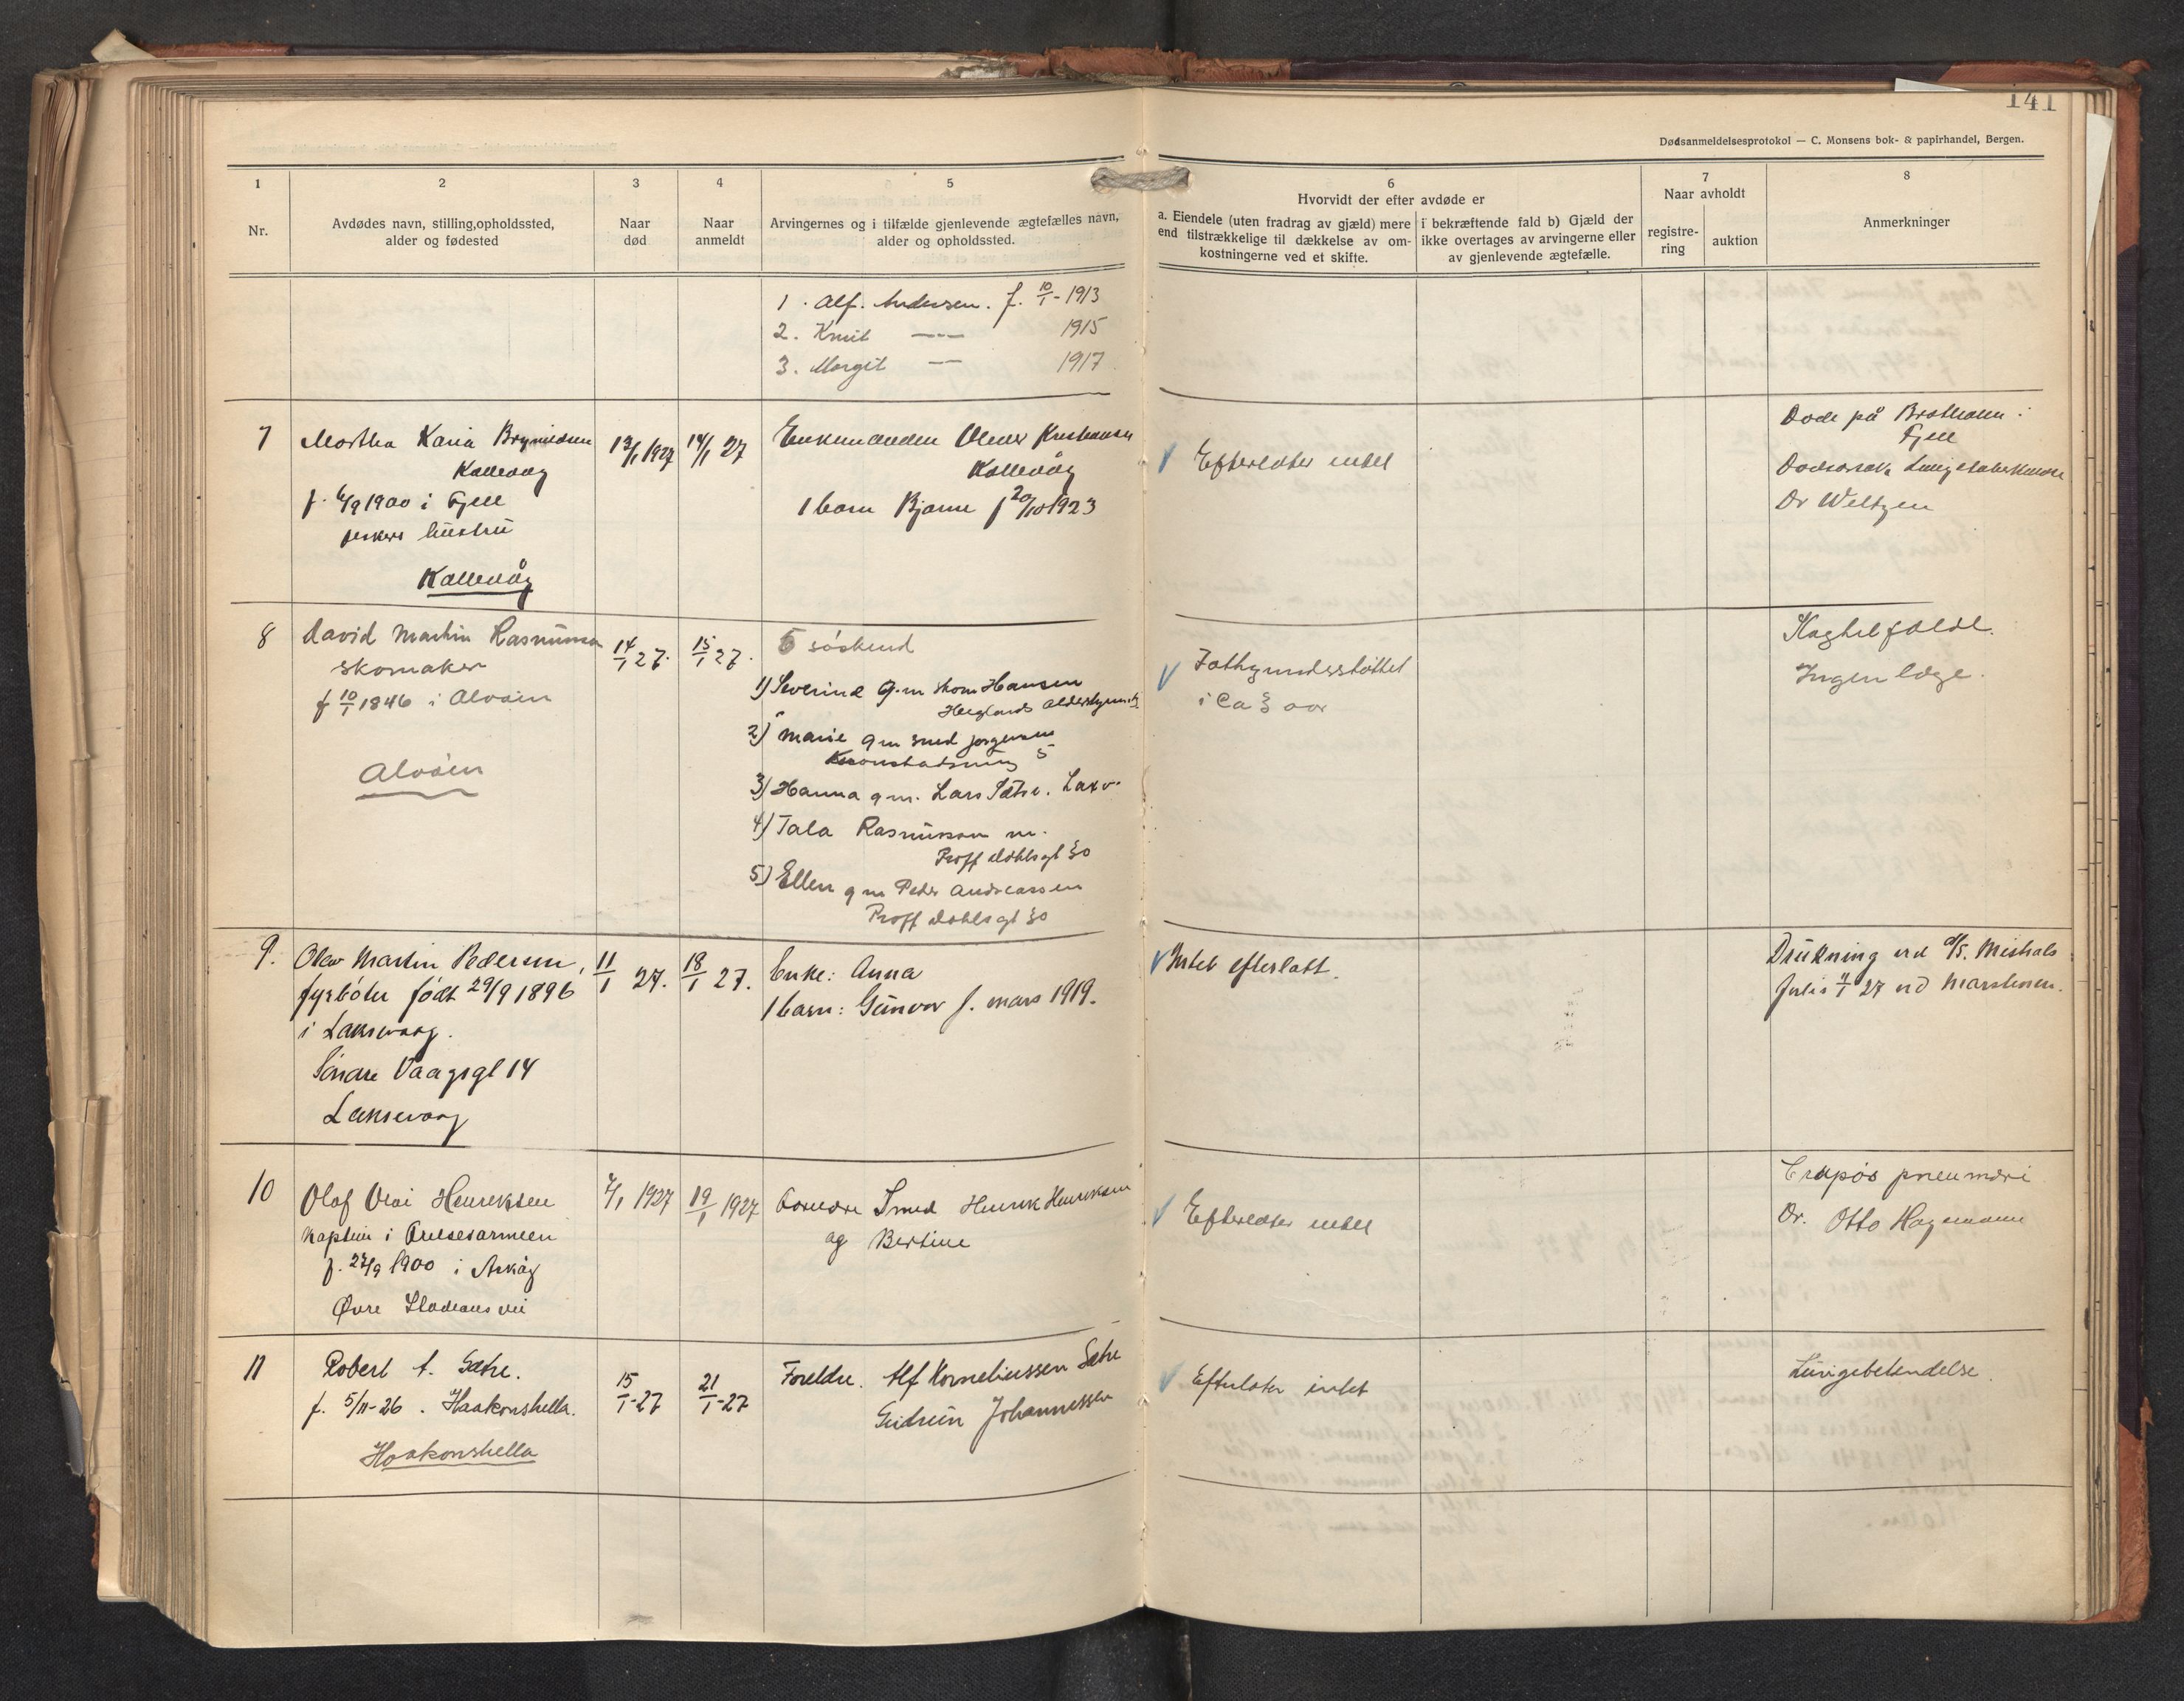 141
Dødsanmeldelsesprotokol — C. Monsens bok- & papirhandel, Bergen.
1
Nr.
2
Avdødes navn, stilling, opholdssted,
alder og fødested
3
Naar
død
4
Naar
anmeldt
5
Arvingernes og i tilfælde gjenlevende ægtefælles navn,
alder og opholdssted.
6
Hvorvidt der efter avdøde er
a. Eiendele (uten fradrag av gjæld) mere
end tilstrækkelige til dækkelse av om-
kostningerne ved et skifte.
i bekræftende fald b) Gjæld der
ikke overtages av arvingerne eller
av gjenlevende ægtefælle.
7
Naar avholdt
registre-
ring
auktion
8
Anmerkninger
1. Alf. Andersen. f. 10/1 - 1913
2. Knut — 1915
3. Margit — 1917
7
Martha Karia
Kallevåg
f. 6/9 1900 i Fjell
hustru
Kallevåg
13/1 1927
14/1 27
Enkemanden
Kallevåg
1 barn Bjarne f 20/10 1923
Efterlater intet
Døde på
Fjell
Dødsårsak Lungetuberkulose
Dr Weltzen
8
David Martin Rasmussen
skomaker
f 10/1 1846 i Alvøen
Alvøen
14/1 27.
15/1 27.
5 søskend
1) Severine g.m skom Hansen
2) Marie gm smed Jørgensen
3) Hanna g m. Lars Sætre. Laxv.
4) Tala Rasmussen
Proff Dahlsgt 30
5) Ellen g m Peder Andreassen
Proff Dahlsgt 30
Fattigunderstøttet
i Ca 3 aar
Ingen læge.
9.
Olav Martin Pedersen,
fyrbøter født 29/9 1896
i Laksevaag.
Søndre Vaagsgt 14
Laksevaag
11/1 27.
18/1 27.
Enke: Anna
1 barn: Gunvor f. mars 1919.
Intet efterlatt.
Drukning ved
27 ved Marstenen.
10
Olaf Olai Henriksen
Kaptein i Frelsesarmeen
f. 27/9 1900 i Askøy
Øvre
7/1 1927
19/1 1927
Foreldre Smed Henrik Henriksen
og Bertine
Efterlater intet
Crupøs pneumoni
Dr. Otto Hagemann
11
Robert A. Sætre.
f. 5/11-26. Haakonshella.
Haakonshella
15/1-27
21/1-27
Foreldre. Alf Korneliussen Sætre
Gudrun Johannessen
Efterlater intet
Lungebetendelse.